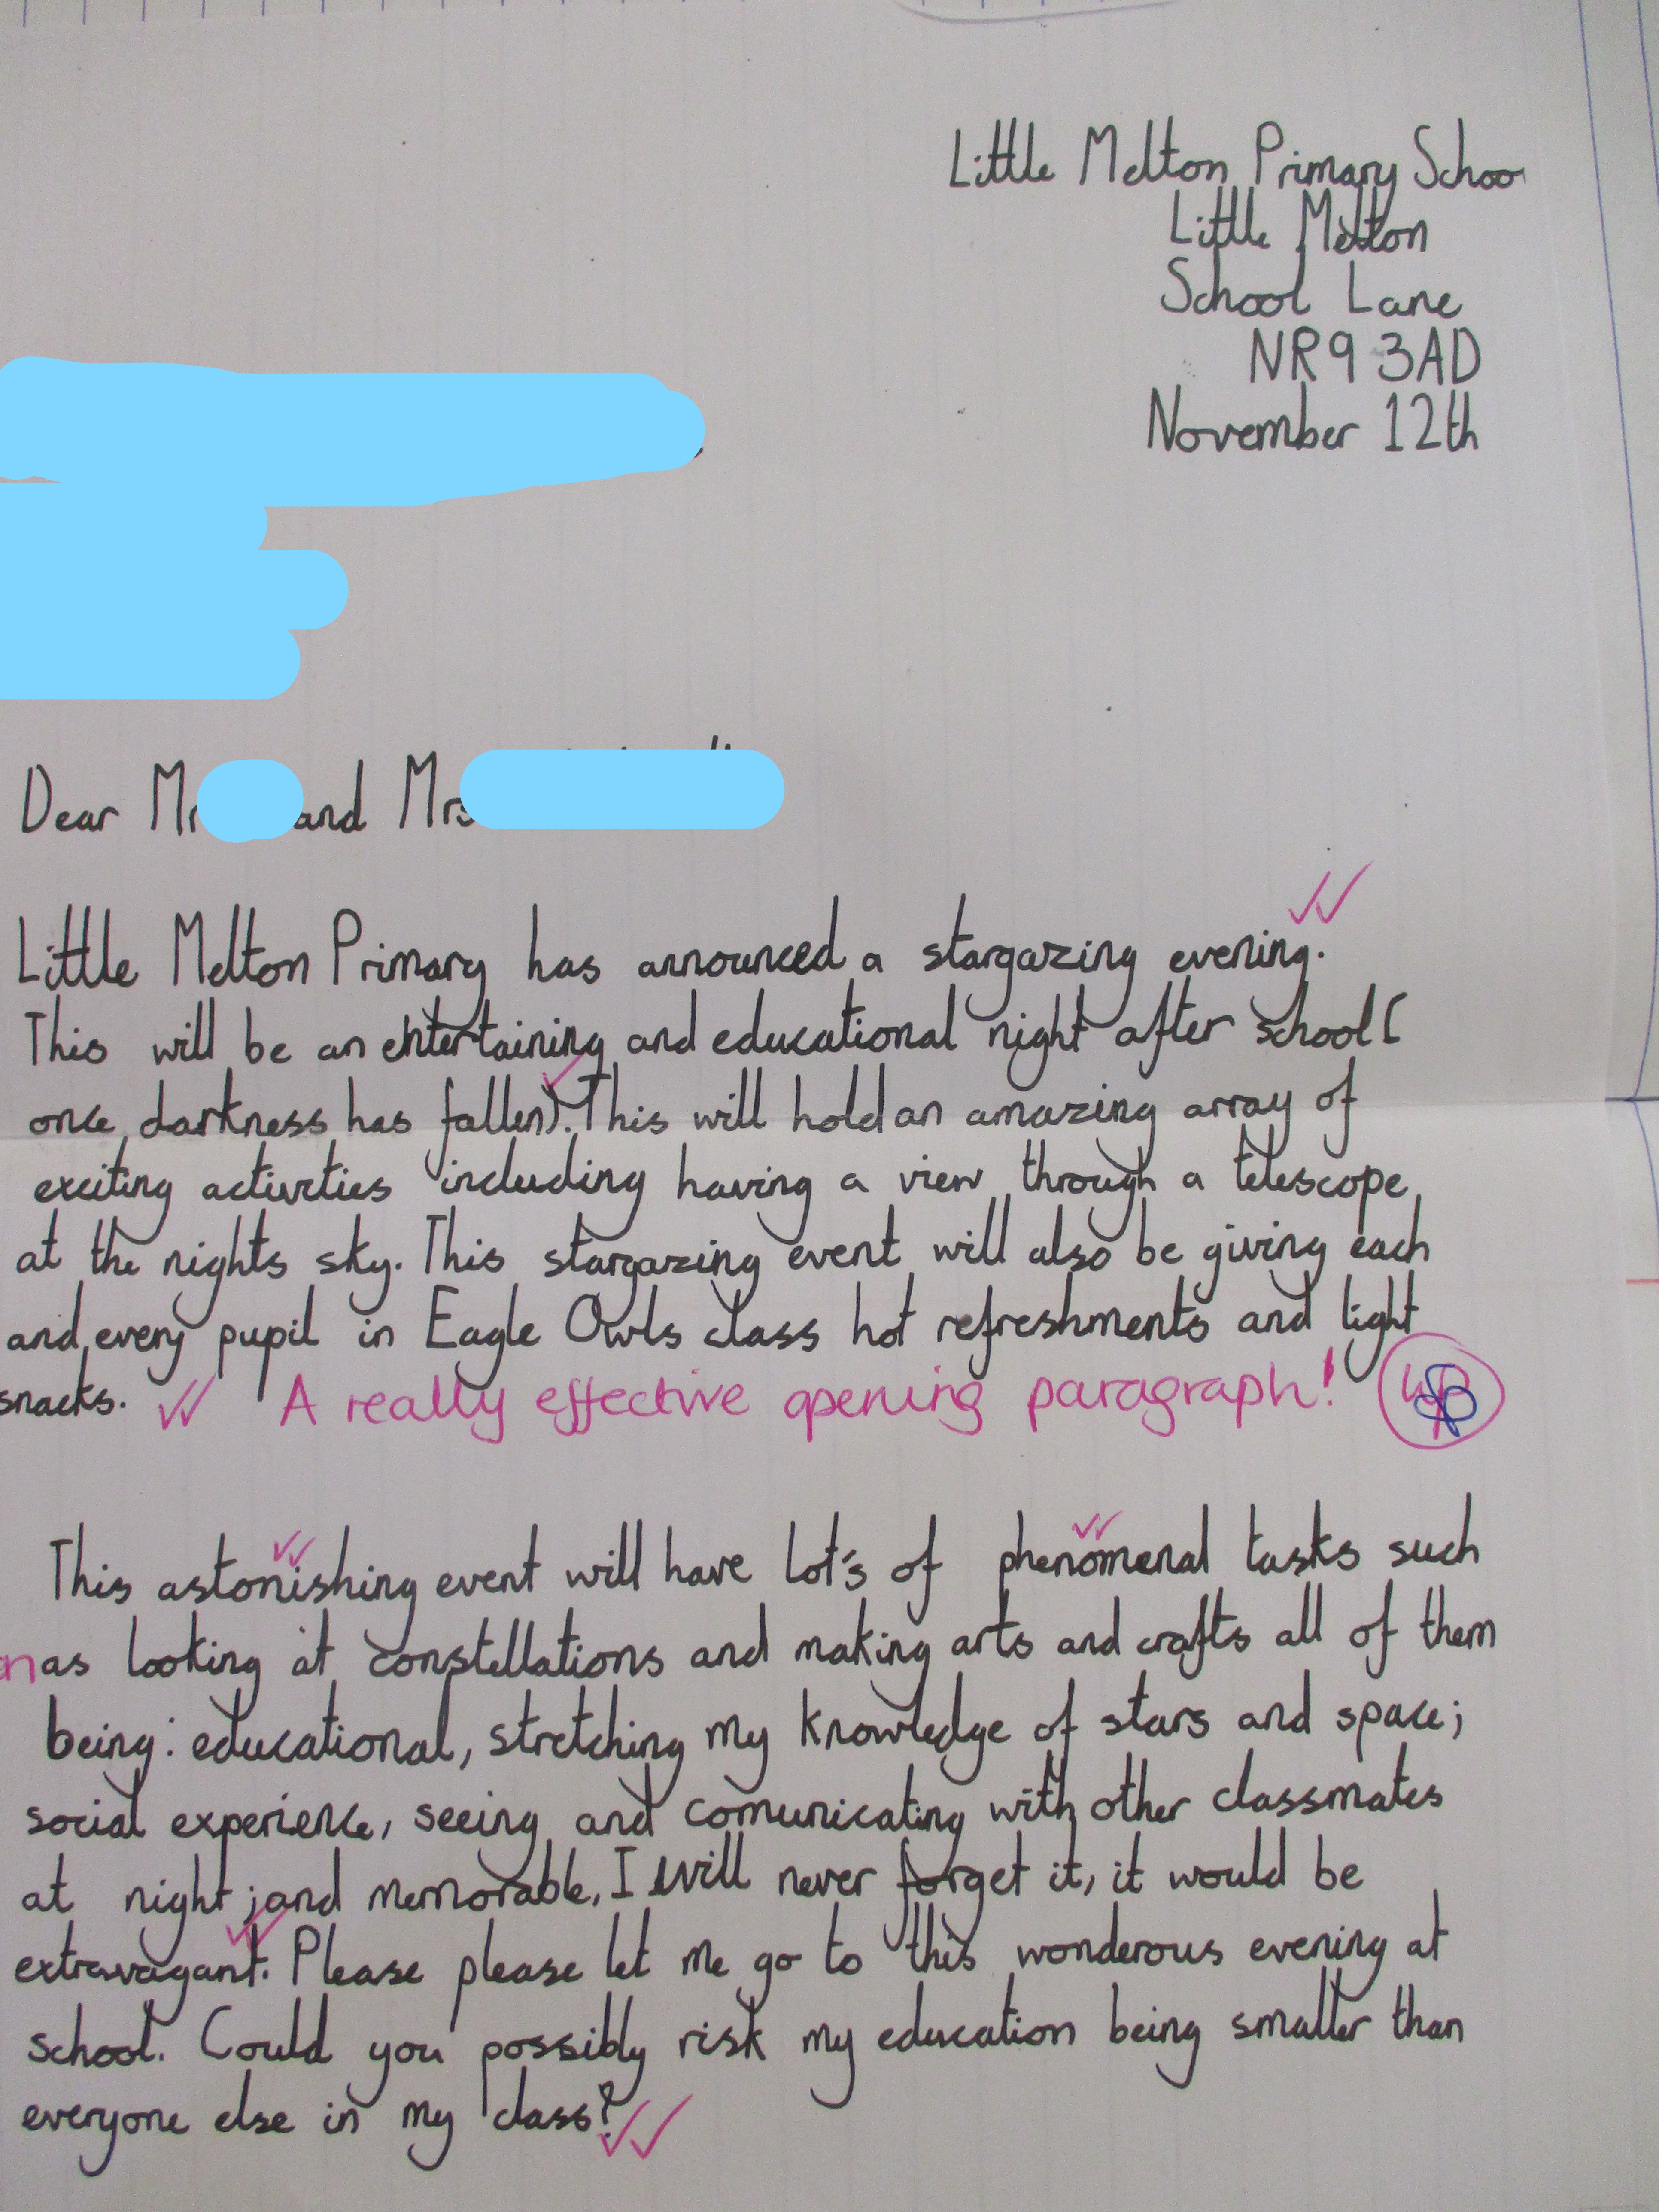 Little Melton Primary Schoo
Little Melton
School Lane
NR9 3AD
November 12th
Dear Mr and Mrs
Little Melton Primary has announced a stargazing evening.
This will be an entertaining and educational night after school (
once darkness has fallen). This will hold an amazing array of
exciting activities including having a view through a telescope
at the nights sky. This stargazing event will also be giving each
and every pupil in Eagle Owls class hot refreshments and light
snacks. A really effective opening paragraph!
This astonishing event will have lot's of phenomenal tasks such
as looking at constellations and making arts and crafts all of them
being: educational, stretching my knowledge of stars and space;
social experience, seeing and comunicating with other classmates
at night; and memorable, I will never forget it, it would be
extravagant. Please please let me go to this wonderous evening at
school. Could you possibly risk my education being smaller than
everyone else in my class?